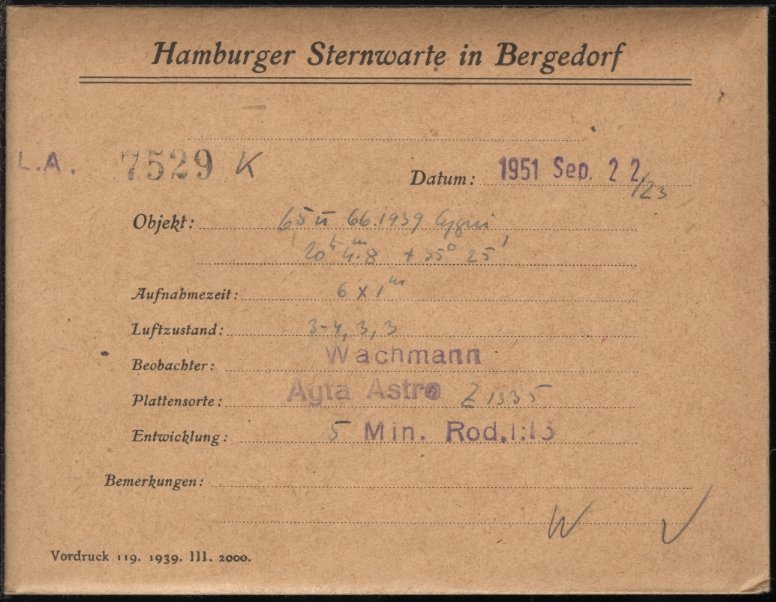 Hamburger Sternwarte in Bergedorf
L.A. 7529 K
Datum: 1951 Sep. 22/23
Objekt: 65 u 66.1939 Cygni
20ʰ 4.ᵐ8 +35° 25'
Aufnahmezeit: 6 x 1ᵐ
Luftzustand: 3-4, 3, 3
Beobachter: Wachmann
Plattensorte: Agfa Astro Z 1335
Entwicklung: 5 Min. Rod. 1:15
Bemerkungen:
W
Vordruck 119. 1939. III. 2000.